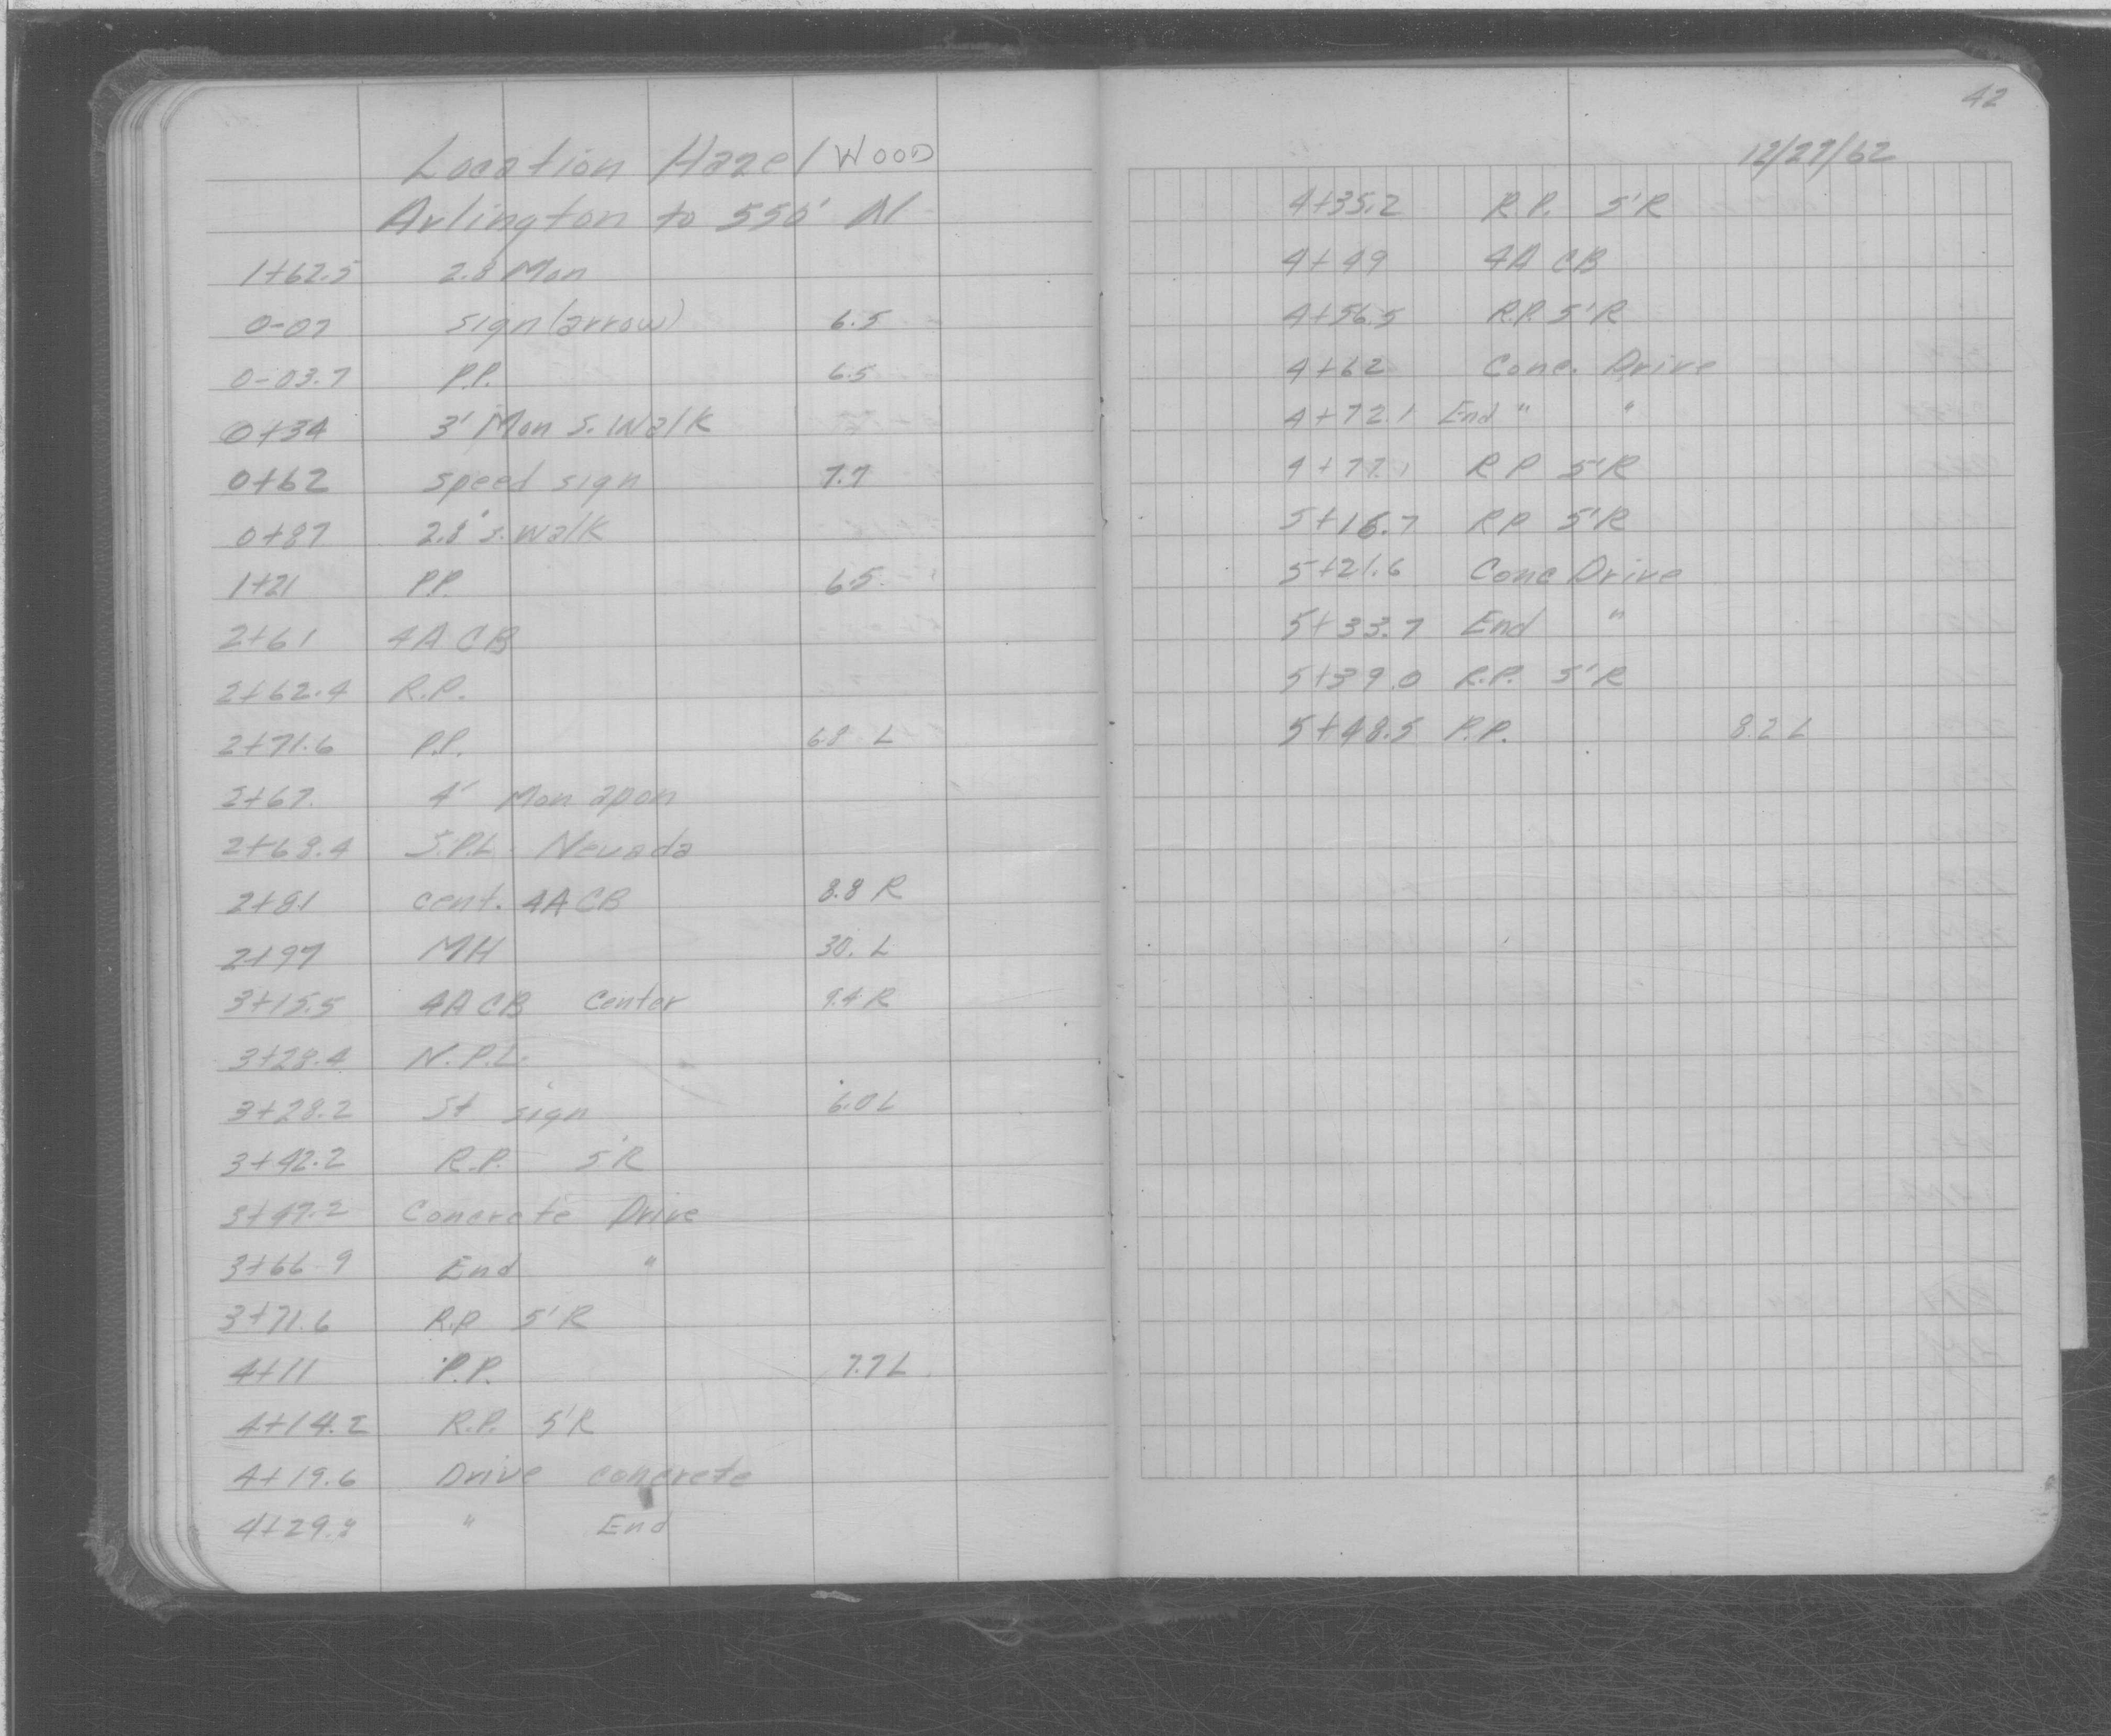 Location Hazel WOOD
Arlington to 550' N
1+62.5 2.8 Mon
0-07 sign (arrow) 6.5
0-03.7 P.P. 6.5
0+34 3' Mon S. Walk
0+62 speed sign 7.7
0+87 2.8' S. Walk
1+21 P.P. 6.5
2+61 4A CB
2+62.4 R.P.
2+71.6 P.P. 6.8 L
2+67. 4' Mon apon
2+68.4 S.P.L. Nevada
2+81 cent. 4A CB 8.8 R
2+97 MH 30. L
3+15.5 4A CB Center 9.4 R
3+28.4 N.P.L.
3+28.2 St sign 6.0 L
3+42.2 R.P. 5'R
3+47.2 Concrete Drive
3+66.9 End "
3+71.6 R.P 5'R
4+11 P.P. 7.7 L
4+14.2 R.P. 5'R
4+19.6 Drive concrete
4+29.8 " End
42
12/27/62
4+35.2 R.P. 5'R
4+49 4A CB
4+56.5 R.P. 5'R
4+62 Conc. Drive
4+72.1 End " "
4+77.1 R P 5'R
5+16.7 R P 5'R
5+21.6 Conc Drive
5+33.7 End "
5+39.0 R.P. 5'R
5+48.5 P.P. 8.2 L